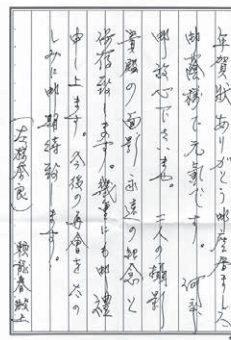 年賀状ありがとう御座居ました
御蔭様で元気です。何卒
御放心下さいませ。二人の撮影
貴殿の面影永遠の記念と
保存致します。幾重にも御礼
申し上ます。今後の再会を太の
しみに御期待致します。